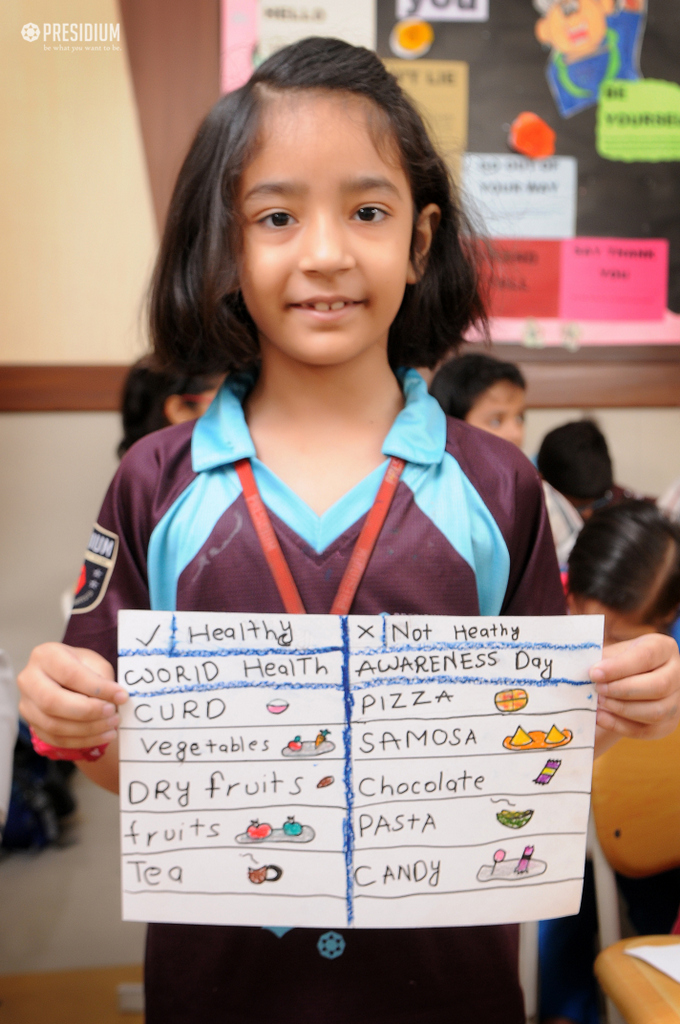 PRESIDIUM
be what you want to be.
HELLO
you
BE
YOURSELF
GO OUT OF
YOUR WAY
SAY THANK
YOU
✓ Healthy × Not Heathy
WORLD HealTh AWARENESS Day
CURD PIZZA
Vegetables SAMOSA
DRY fruits Chocolate
fruits PASTA
Tea CANDY